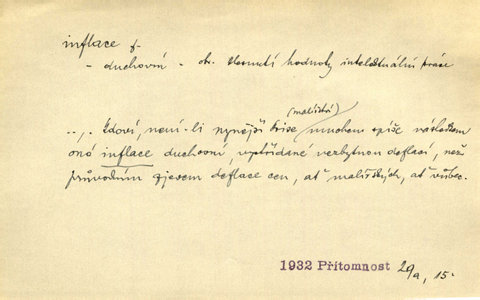 inflace f.
- duchovní - ob. klesnutí hodnoty intelektuální práce
(malířská)
..,. kdoví, není-li nynější krise mnohem spíše následkem
oné inflace duchovní, vystřídané nezbytnou deflací, než
průvodním zjevem deflace cen, ať malířských, ať vůbec.
1932 Přítomnost 29a, 15.